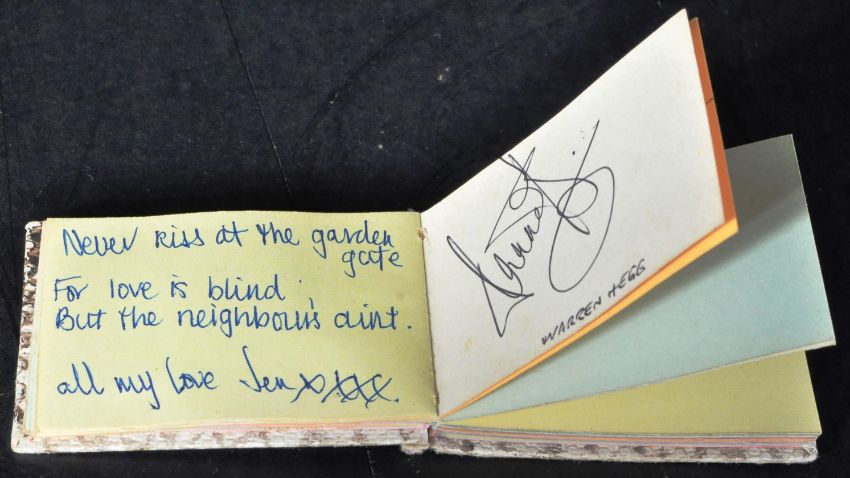 Never kiss at the garden
gate
For love is blind
But the neighbours aint.
all my love Jen xxxx.
WARREN HEGG